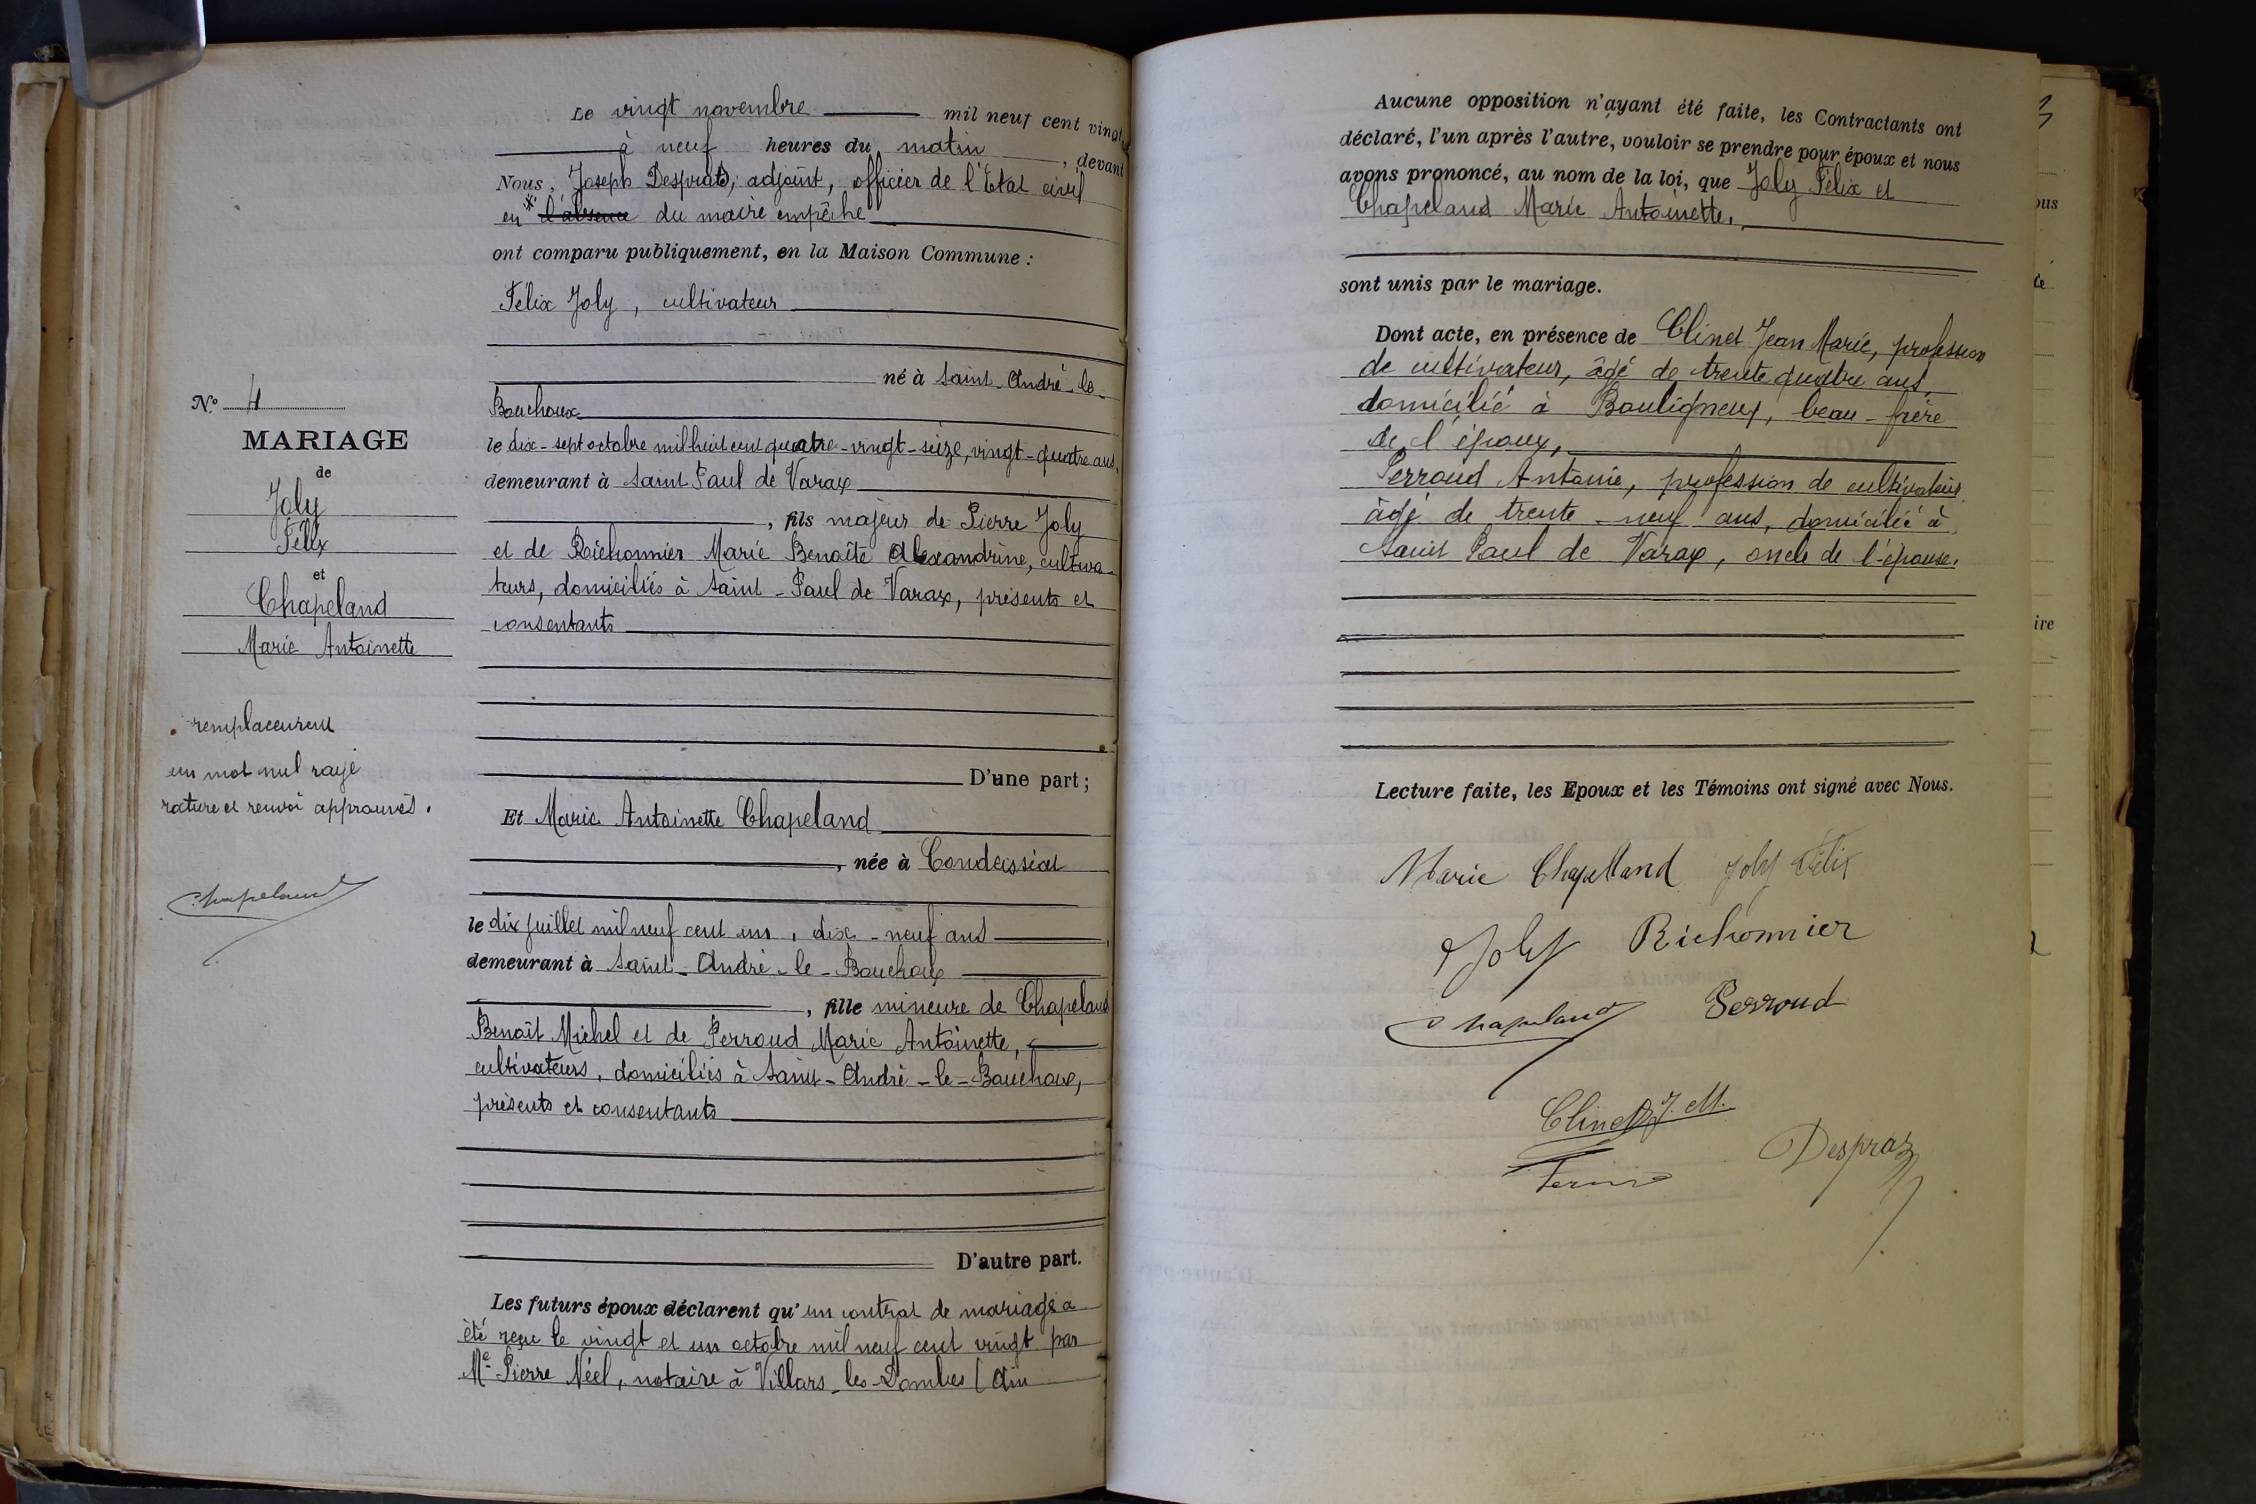 Le vingt novembre mil neuf cent vingt
à neuf heures du matin, devant
Nous, Joseph Desprats, adjoint, officier de l'Etat civil
en * l'absence du maire empêché
ont comparu publiquement, en la Maison Commune :
Félix Joly, cultivateur
né à Saint-André-le-
Bouchoux
le dix-sept octobre mil huit cent quatre-vingt-seize, vingt-quatre ans,
demeurant à Saint Paul de Varax
, fils majeur de Pierre Joly
et de Richonnier Marie Benoîte Alexandrine, cultiva-
teurs, domiciliés à Saint-Paul de Varax, présents et
consentants
D'une part ;
Et Marie Antoinette Chapeland
, née à Condeissiat
le dix juillet mil neuf cent un, dix-neuf ans,
demeurant à Saint-André-le-Bouchoux
, fille mineure de Chapeland
Benoît Michel et de Perroud Marie Antoinette,
cultivateurs, domiciliés à Saint-André-le-Bouchoux,
présents et consentants
D'autre part.
Les futurs époux déclarent qu'un contrat de mariage a
été reçu le vingt et un octobre mil neuf cent vingt par
Me Pierre Néel, notaire à Villars-les-Dombes (Ain
N° 4
MARIAGE
de
Joly
Félix
et
Chapeland
Marie Antoinette
remplacement
un mot nul rayé
rature et renvoi approuvés.
Chapeland
Aucune opposition n'ayant été faite, les Contractants ont
déclaré, l'un après l'autre, vouloir se prendre pour époux et nous
avons prononcé, au nom de la loi, que Joly Félix et
Chapeland Marie Antoinette,
sont unis par le mariage.
Dont acte, en présence de Clinet Jean Marie, profession
de cultivateur, âgé de trente quatre ans
domicilié à Bouligneux, beau-frère
de l'époux,
Perroud Antoine, profession de cultivateur
âgé de trente-neuf ans, domicilié à
Saint Paul de Varax, oncle de l'épouse.
Lecture faite, les Epoux et les Témoins ont signé avec Nous.
Marie Chapelland Joly Félix
Joly Richonnier
Chapeland Perroud
Clinet J. M.
Despraz
ous
té
ire